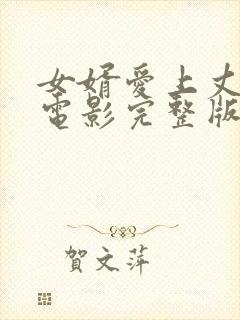 女婿愛上丈
電影完整版
賀文萍